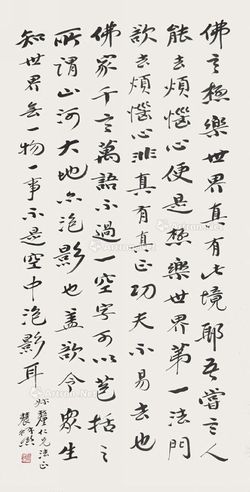 佛言極樂世界真有此境耶吾嘗言人
能去煩惱心便是極樂世界第一法門
欲去煩惱心非真有真正功夫不易去也
佛家千言萬語不過一空字可以包括之
所謂山河大地亦泡影也蓋欲令眾生
知世界無一物一事不是空中泡影耳
仁兄法正